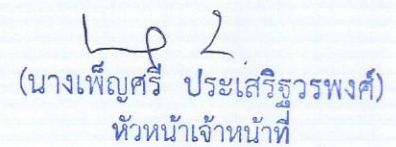 (นางเพ็ญศรี ประเสริฐวรพงศ์)
หัวหน้าเจ้าหน้าที่